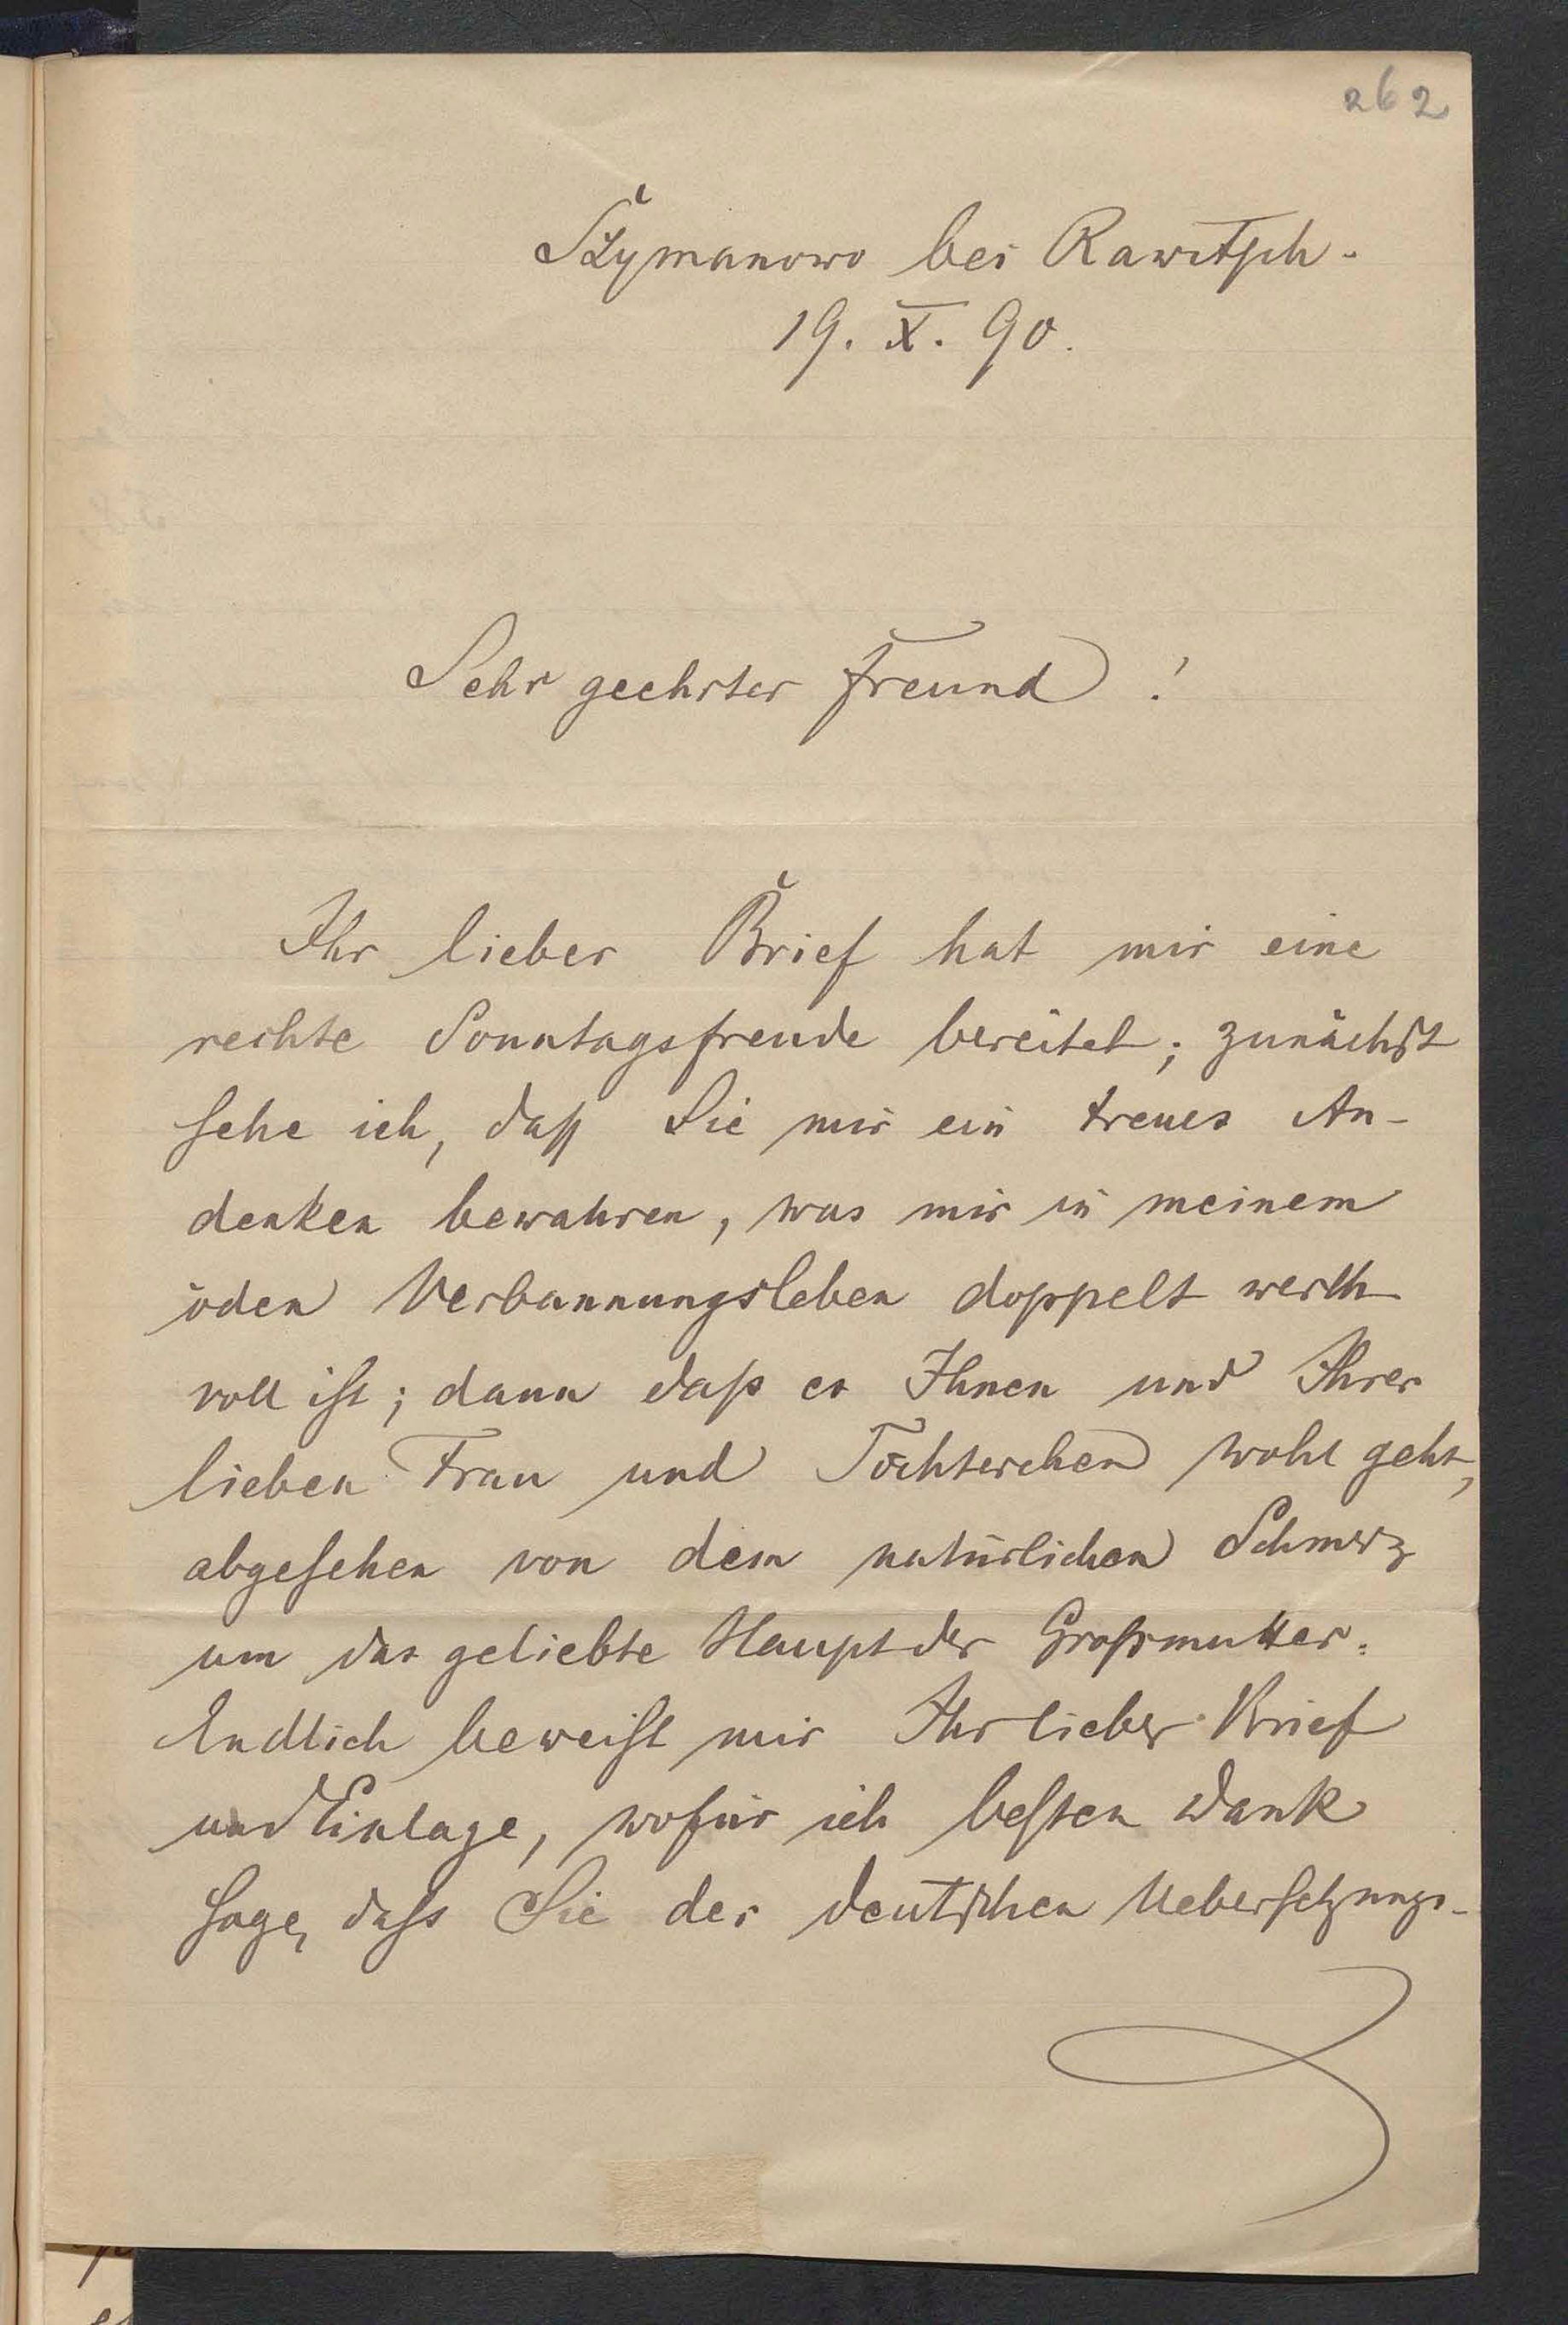 262
Szymanowo bei Rawitsch.
19. X. 90.
Sehr geehrter Freund!
Ihr lieber Brief hat mir eine
rechte Sonntagsfreude bereitet; zunächst
sehe ich, daß Sie mir ein treues An-
denken bewahren, was mir in meinem
öden Verbannungsleben doppelt werth
voll ist; dann daß es Ihnen und Ihrer
lieben Frau und Töchterchen wohl geht,
abgesehen von dem natürlichen Schmerz
um das geliebte Haupt der Großmutter.
Endlich beweist mir Ihr lieber Brief
und Einlage, wofür ich besten Dank
sage, daß Sie der deutschen Uebersetzungs-